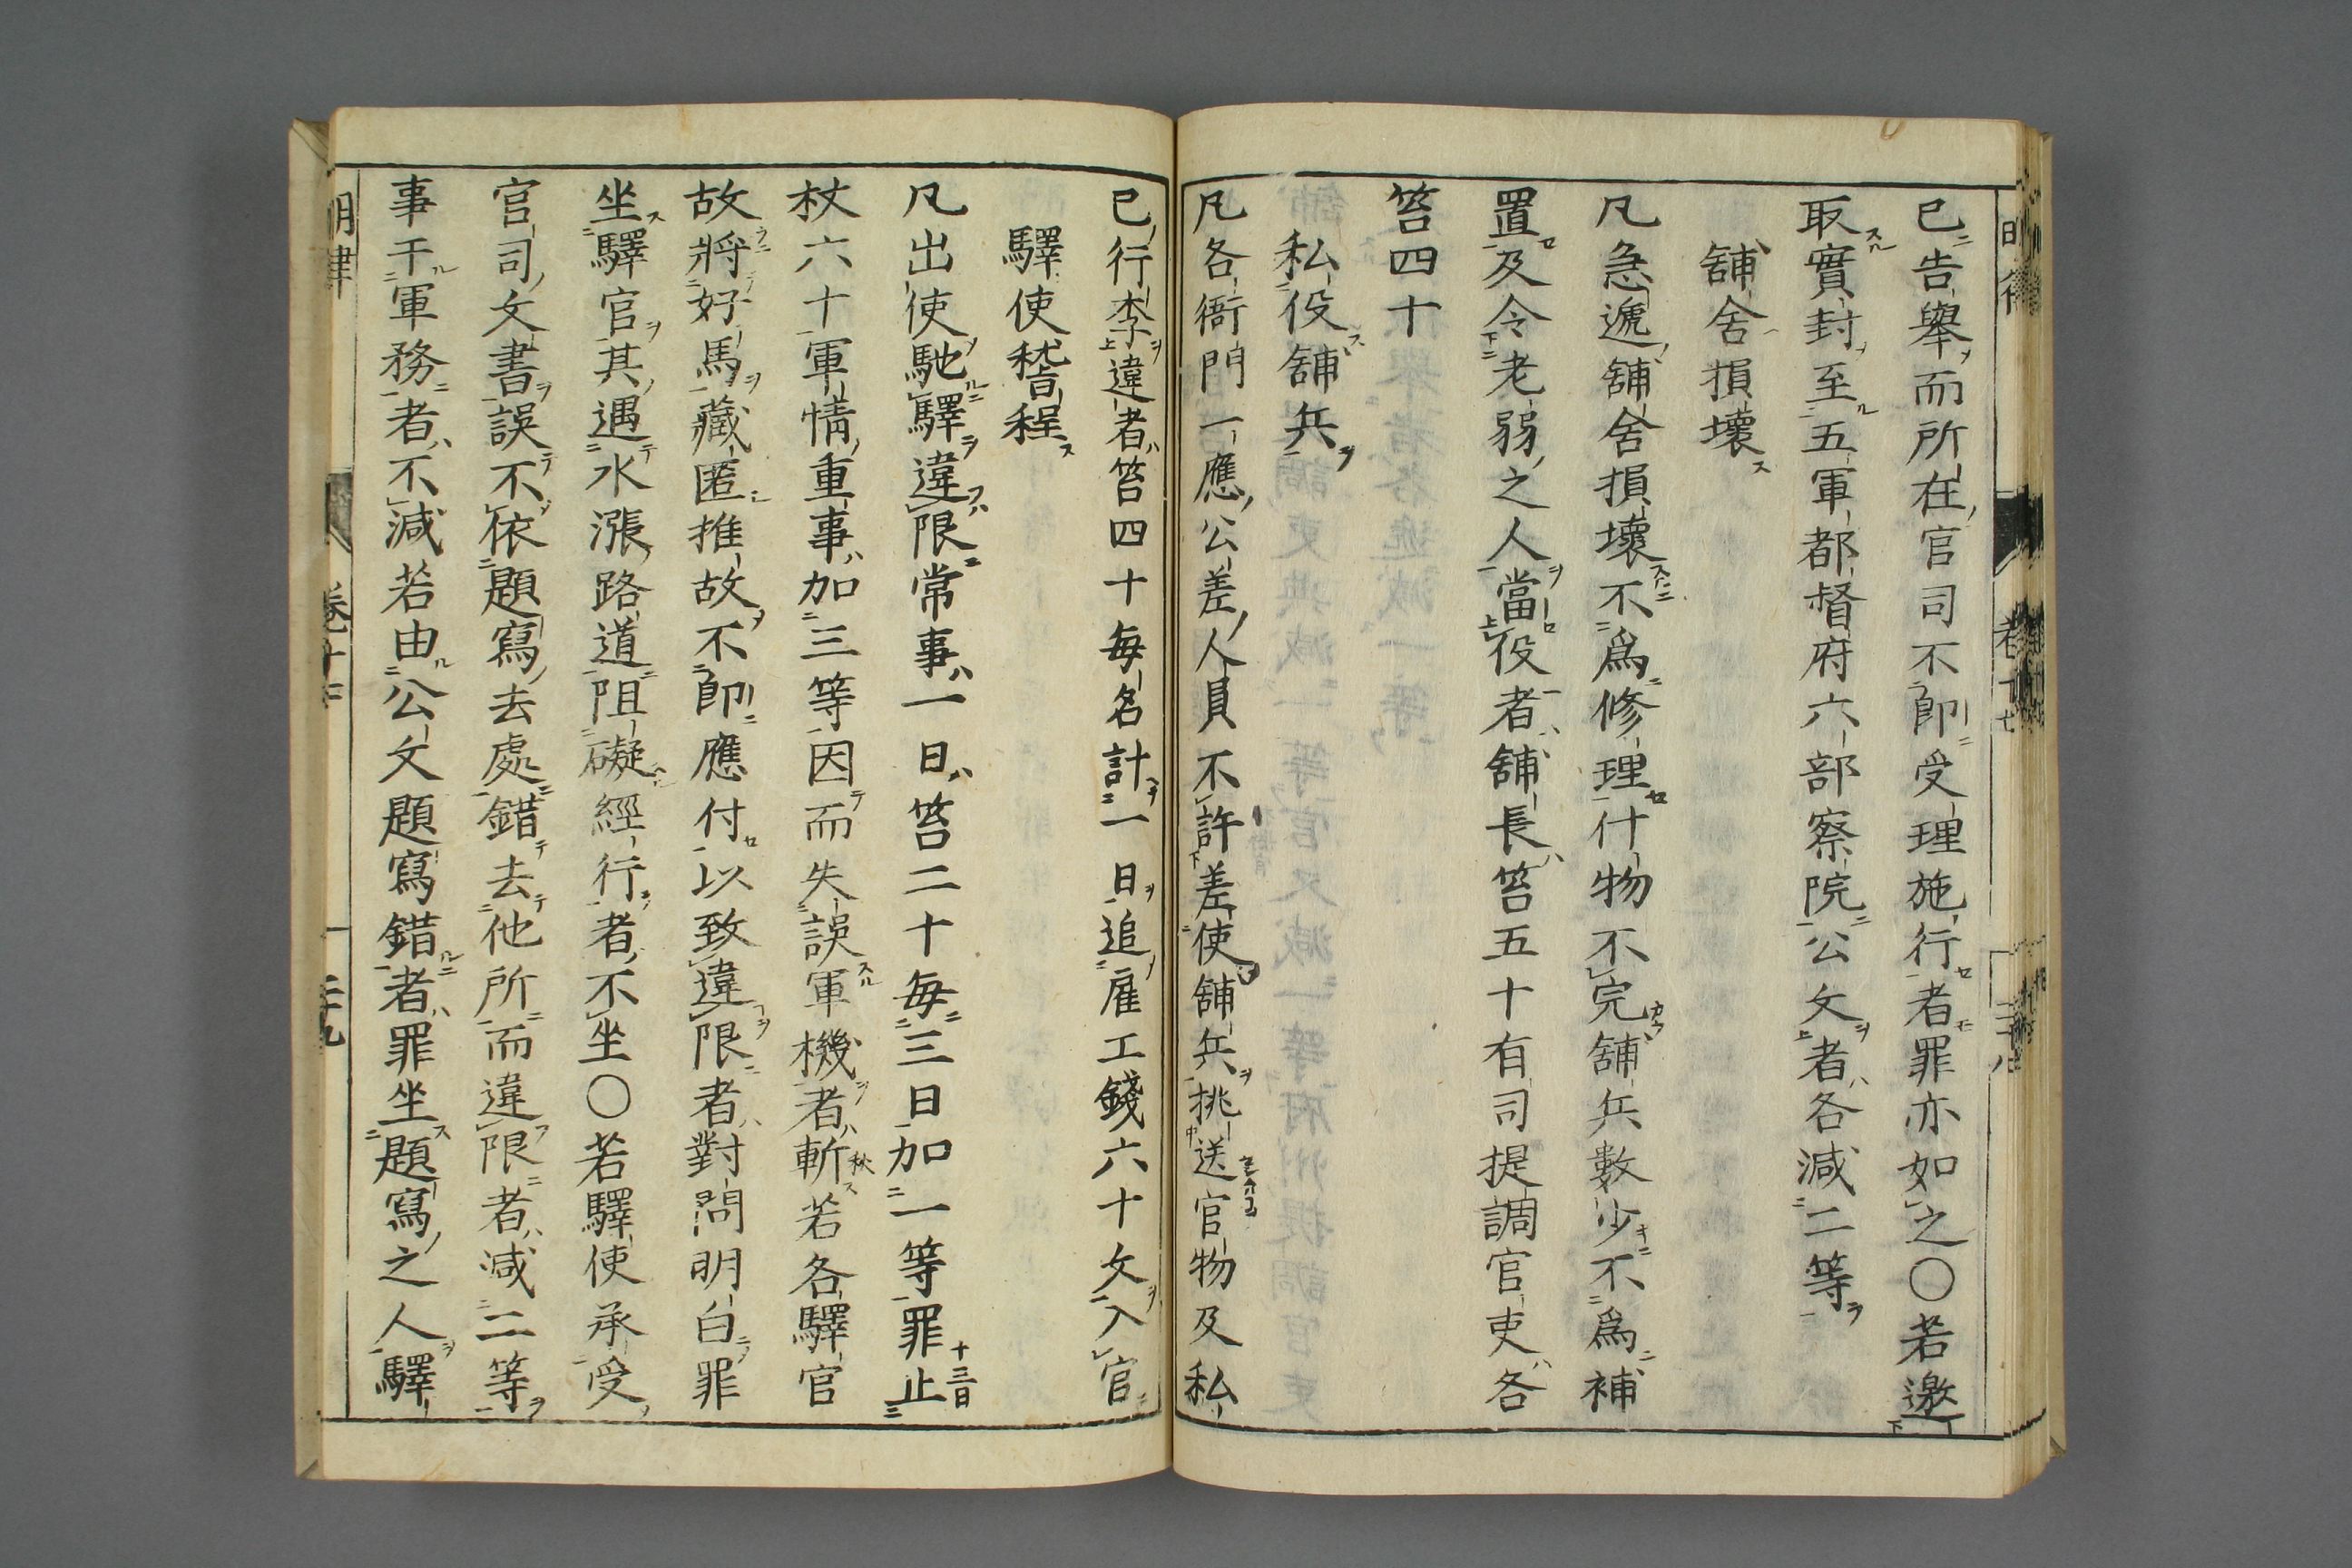 已告舉而所在官司不卽受理施行者罪亦如之〇若邀
取實封至五軍都督府六部察院公文者各減二等
舖舍損壞
凡急遞舖舍損壞不爲修理什物不完舖兵數少不爲補
置及令老弱之人當役者舖長笞五十有司提調官吏各
笞四十
私役舖兵
凡各衙門一應公差人員不許差使舖兵挑送官物及私
已行李違者笞四十每名計一日追雇工錢六十文入官
驛使稽程
凡出使馳驛違限常事一日笞二十每三日加一等罪止
杖六十軍情重事加三等因而失誤軍機者斬若各驛官
故將好馬藏匿推故不卽應付以致違限者對問明白罪
坐驛官其遇水漲路道阻礙經行者不坐〇若驛使承受
官司文書誤不依題寫去處錯去他所而違限者減二等
事干軍務者不減若由公文題寫錯者罪坐題寫之人驛
明律